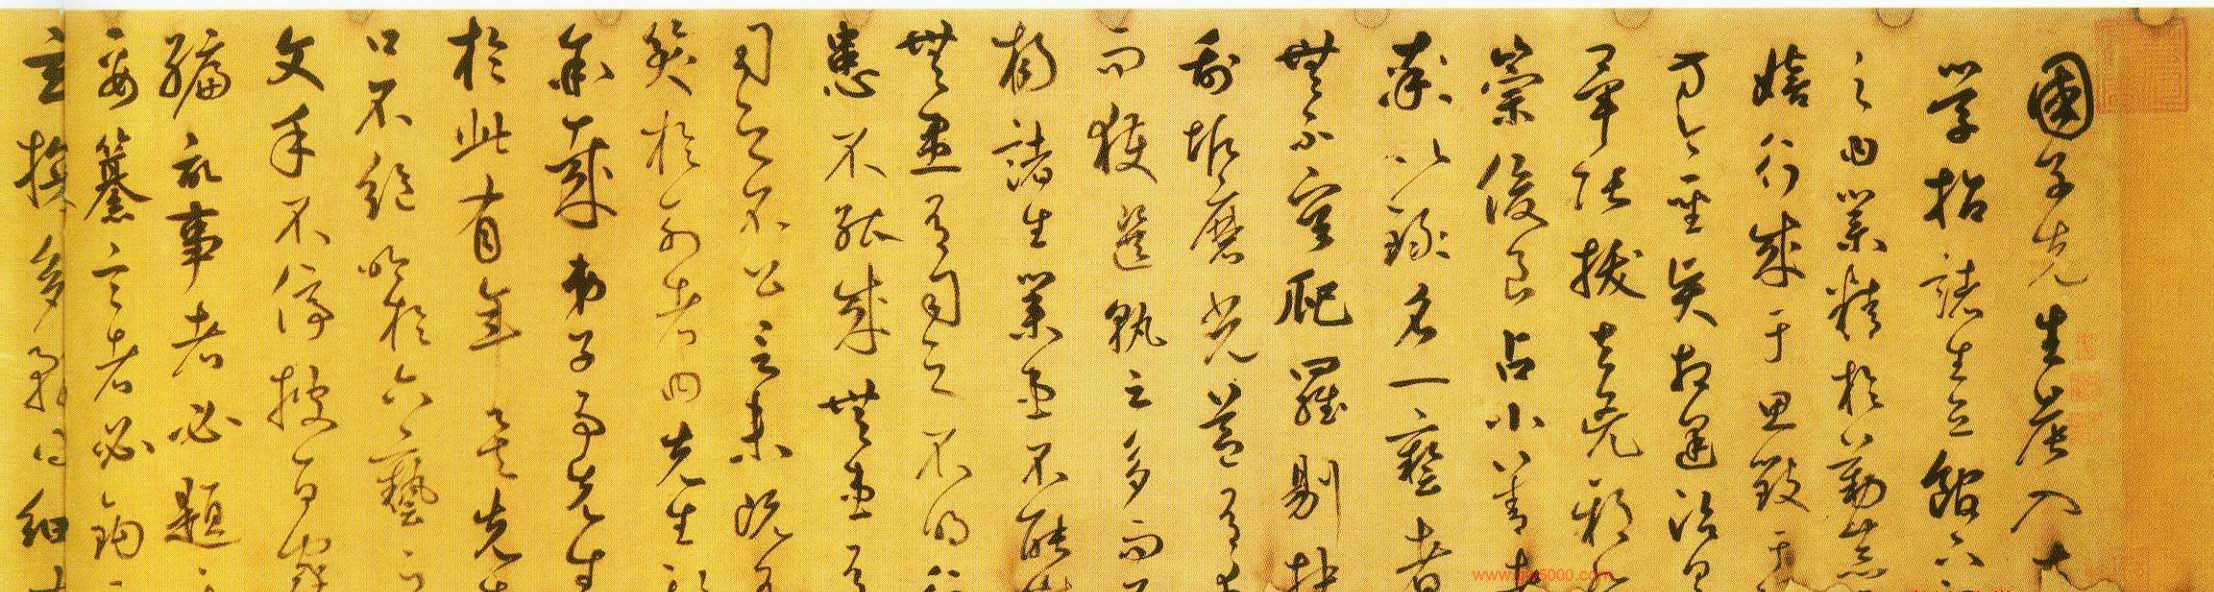 國子先生晨入太
學招諸生立館下
之曰業精於勤荒
嬉行成于思毀于
方今聖賢相逢治具
畢張拔去兇邪
崇俊良占小善者
率以錄名一藝者
無不庸爬羅剔抉
刮垢磨光蓋有幸
而獲選孰云多而不
揚諸生業患不能精
無患有司之不明行
患不能成無患有
司之不公言未既有
笑於列者曰先生欺
余哉弟子事先生
於此有年矣先生
口不絕吟於六藝之
文手不停披百家
編記事者必提
要纂言者必鉤
玄多務得細